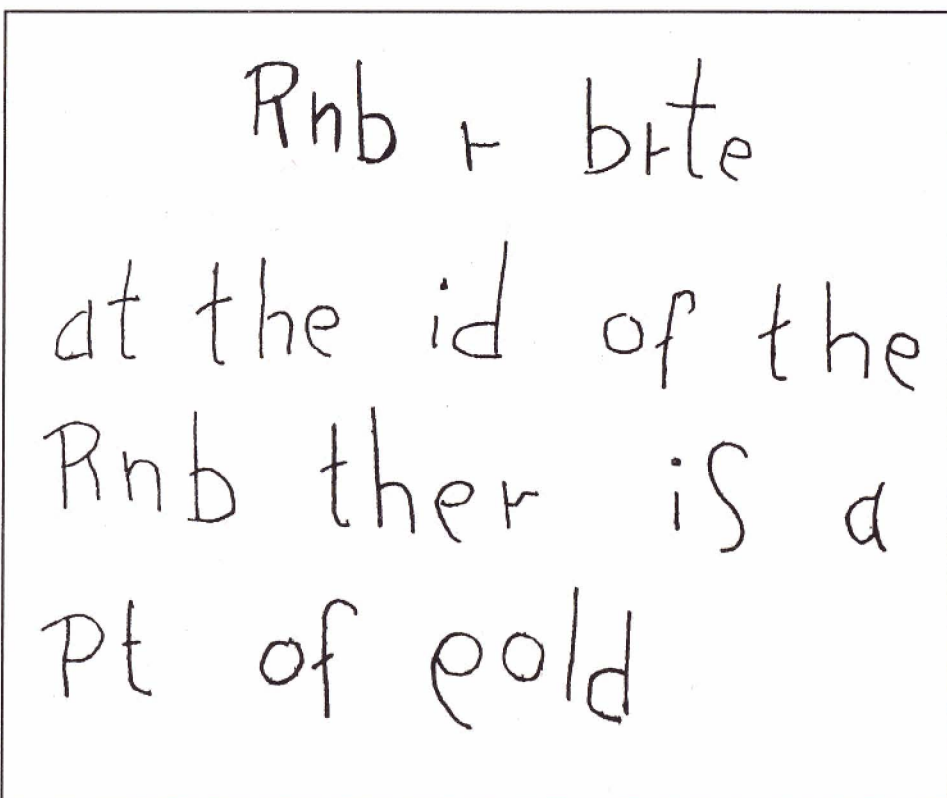 Rnb r brte
at the id of the
Rnb ther is a
Pt of gold